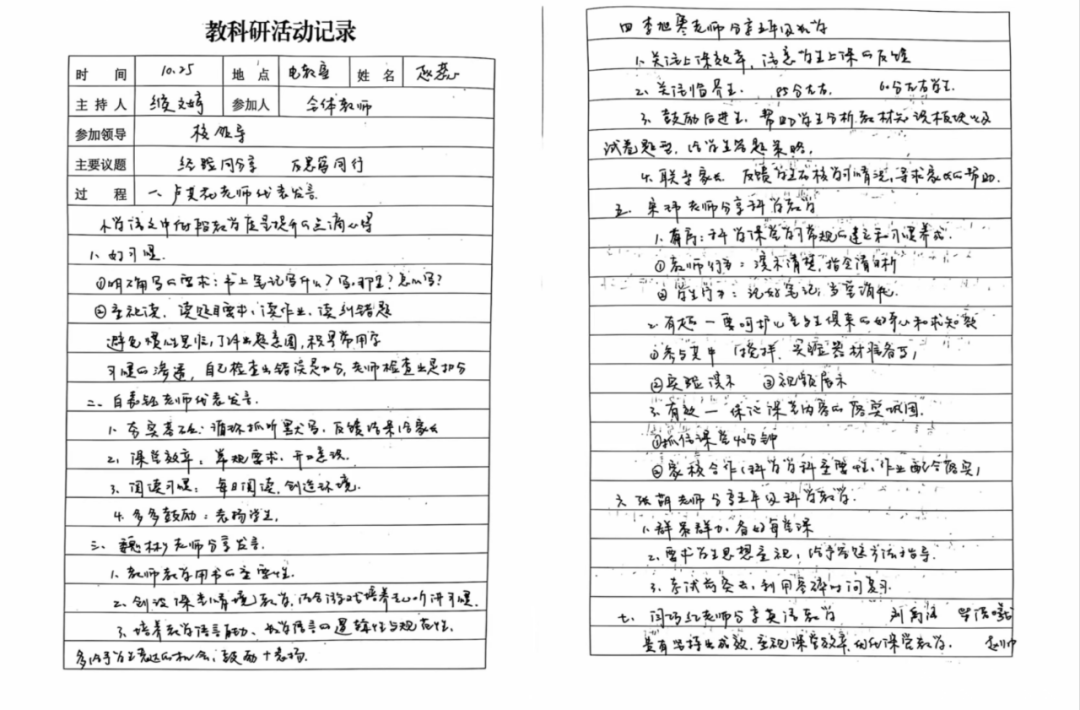 教科研活动记录
时 间 10.25 地 点 电教室 姓 名
主持人 参加人 全体教师
参加领导 校领导
主要议题 经验同分享 反思导同行
过 程 一、卢其花老师代表发言.
小学语文中低段教学质量提升的点滴心得
1、好习惯.
①明确写的要求：书上笔记写什么？写哪里？怎么写？
②重视读，读题目要中，读作业，读纠错题
避免惯性思维，了解出题意图，积累常用字
习惯的渗透，自己检查出错误是加分，老师检查出是扣分
二、白春钰老师代表发言.
1、夯实基础：循环抓听默写，反馈结果给家长
2、课堂效率，常规要求，开口表谈.
3、阅读习惯：每日阅读，创造环境.
4、多多鼓励：表扬学生.
三、老师分享发言.
1、教师教学用书的重要性.
2、创设课堂情境教学，结合游戏培养学生听讲习惯.
3、培养教学语言能力、教学语言的逻辑性与规范性.
多给予学生表达的机会，鼓励+表扬.
四 李旭寒老师分享五年级教学
1、关注上课效率，注意学生上课的反馈
2、关注临界生. 85分左右. 60分左右学生.
3、鼓励后进生，帮助学生分析教材知识板块以及
试卷题型，给学生答题策略.
4、联系家长 反馈学生在校学习情况，寻求家长的帮助.
五、宋玮老师分享科学教学
1、有序：科学课堂学习常规的建立和习惯养成.
①教师行为：演示清楚，指令清晰
②学生行为：记好笔记，当堂消化.
2、有趣 — 要呵护学生与生俱来的好奇心和求知欲
①参与其中 搅拌，实验器材准备了，
②实验演示 ③视频展示
3、有效 — 保证课堂内容的落实巩固.
①抓住课堂40分钟
②家校合作（科学学科重要性，作业配合落实）
六 张朝老师分享五年级科学教学.
1、群策群力，备好每堂课
2、要求学生思想重视，给予答题方法指导.
3、考试前突击，利用零碎时间复习.
七、闫巧红老师分享英语教学
是有坚持出成效，重视课堂效率，优化课堂教学. 赵帅